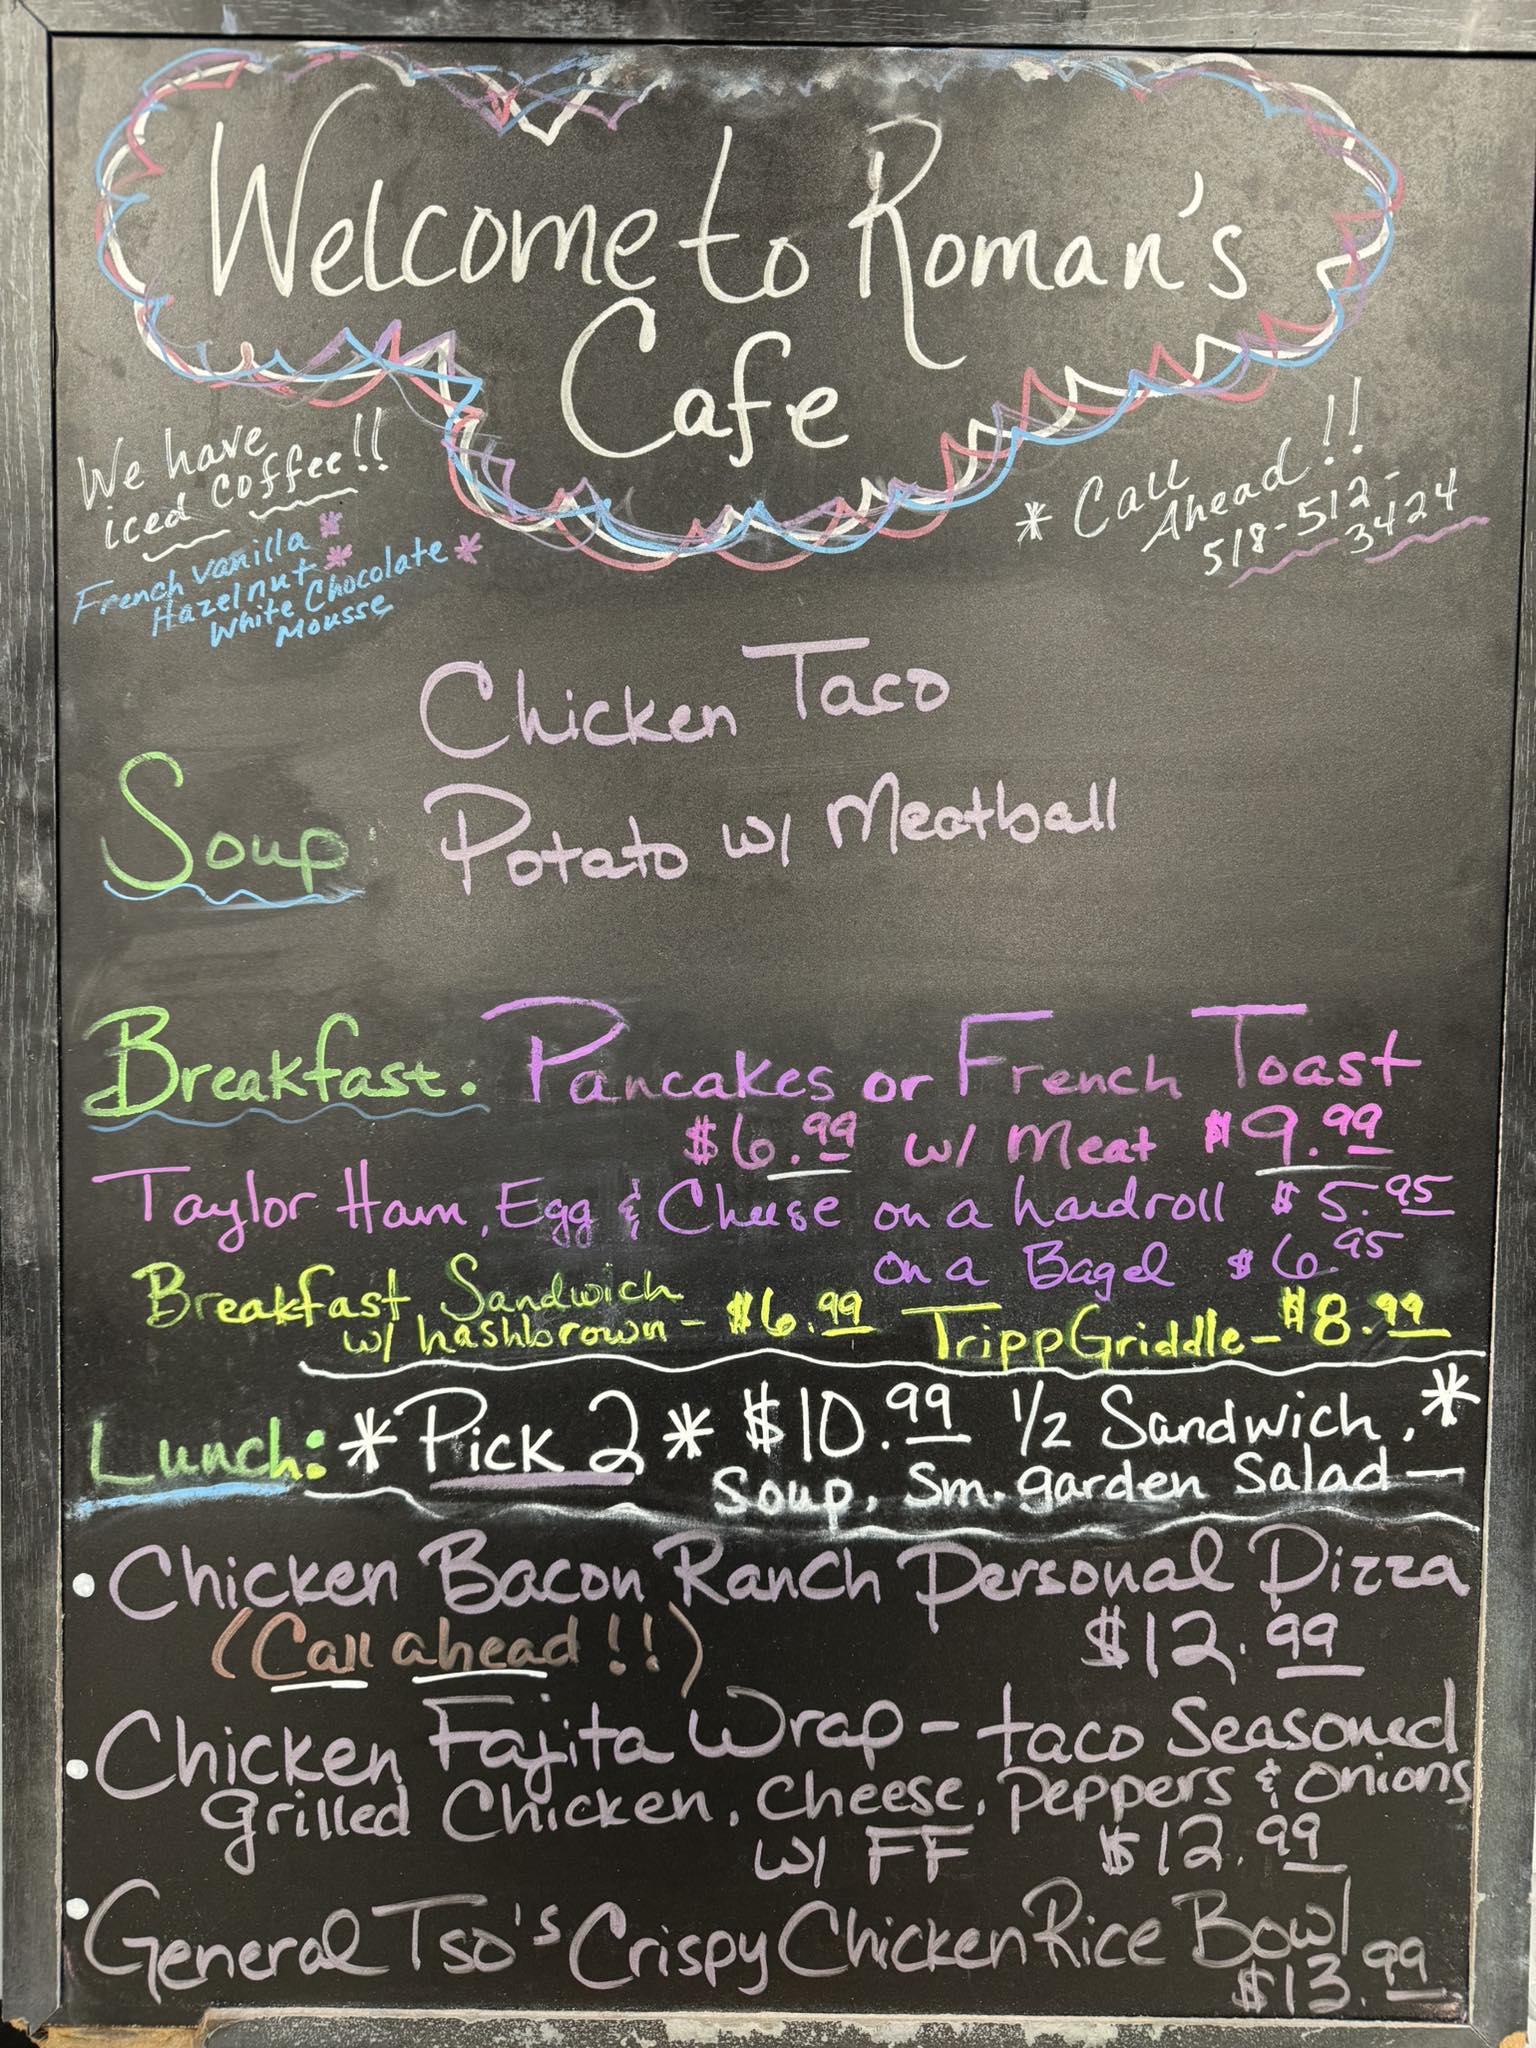 Welcome to Roman's
Cafe
We have
iced coffee!!
French Vanilla *
Hazelnut *
White Chocolate *
Mousse
* Call
Ahead!!
518-512-
3424
Soup
Chicken Taco
Potato w/ Meatball
Breakfast. Pancakes or French Toast
$6.99 w/ Meat $9.99
Taylor Ham, Egg & Cheese on a hardroll $5.95
on a Bagel $6.95
Breakfast Sandwich
w/ hashbrown - $6.99
TrippGriddle - $8.99
Lunch: *Pick 2* $10.99 1/2 Sandwich, *
Soup, Sm. garden Salad —
• Chicken Bacon Ranch Personal Pizza
(Call ahead!!) $12.99
• Chicken Fajita Wrap - taco Seasoned
grilled Chicken, Cheese, Peppers & onions
w/ FF $12.99
• General Tso's Crispy Chicken Rice Bowl
$13.99